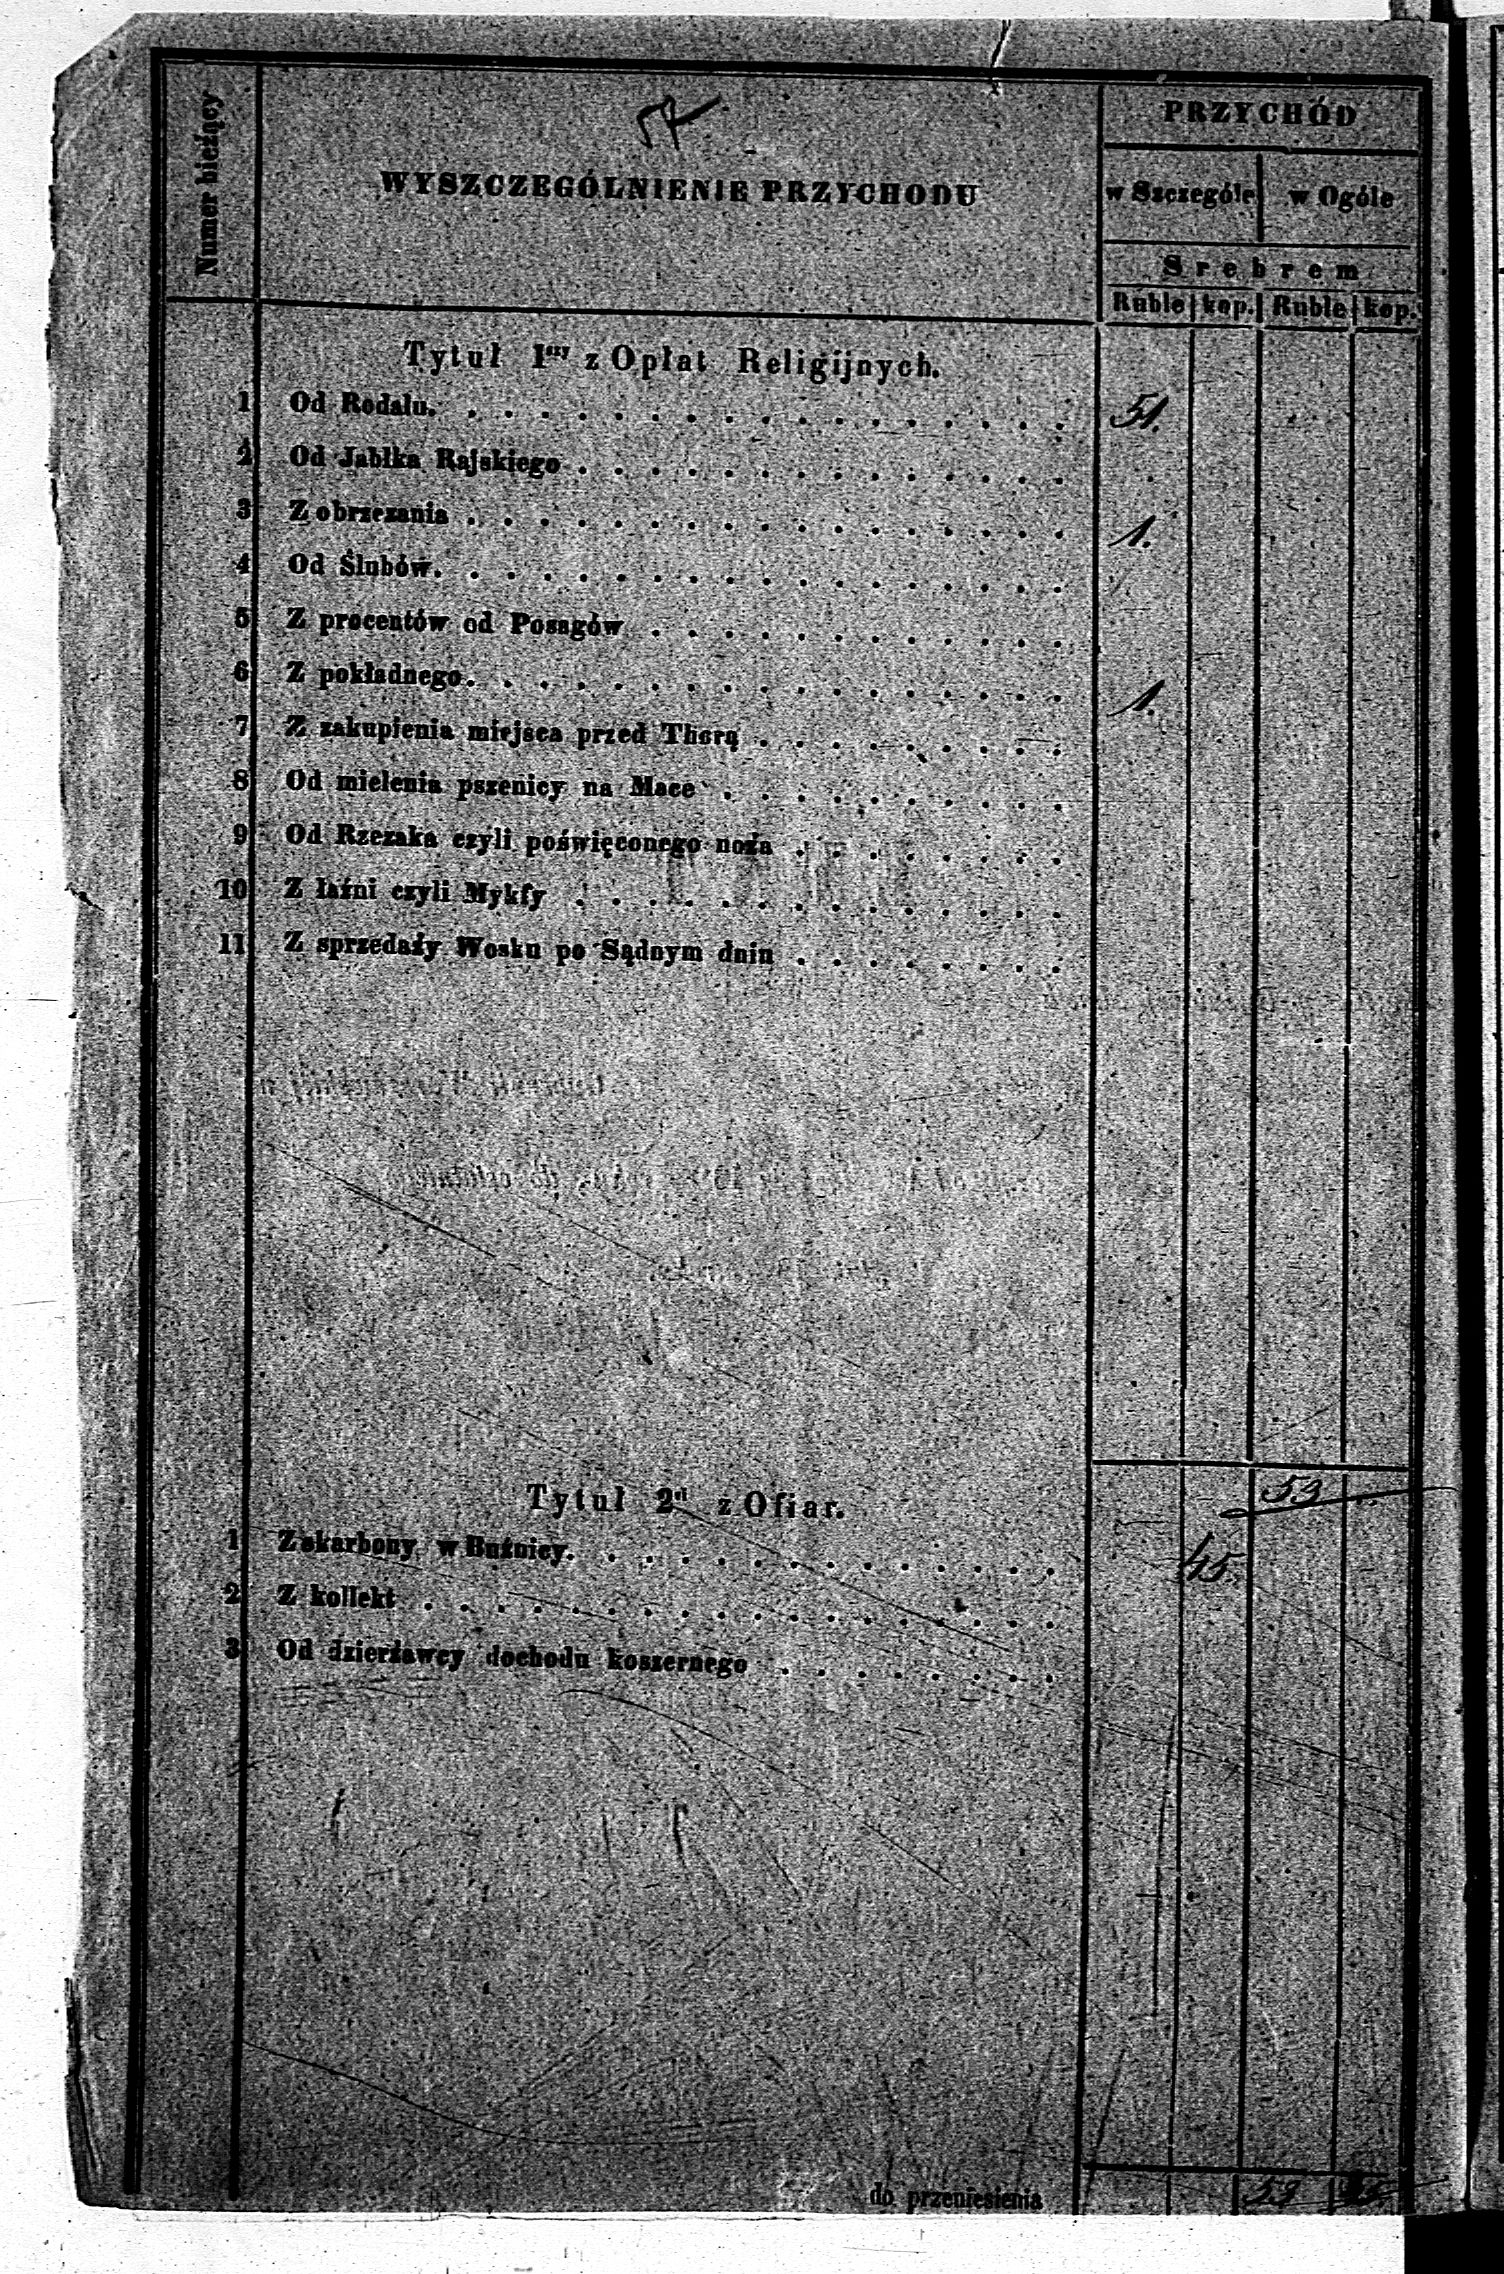 57
Numer bieżący
WYSZCZEGÓLNIENIE PRZYCHODU
PRZYCHÓD
w Szczególe w Ogóle
Srebrem
Ruble kop. Ruble kop.
Tytuł Iszy z Opłat Religijnych.
1 Od Rodału. 51.
2 Od Jabłka Rajskiego
3 Z obrzezania 1.
4 Od Ślubów.
5 Z procentów od Posagów
6 Z pokładnego. 1.
7 Z zakupienia miejsca przed Thorą
8 Od mielenia pszenicy na Mace
9 Od Rzezaka czyli poświęconego noża
10 Z łaźni czyli Mykfy
11 Z sprzedaży Wosku po Sądnym dniu
53
Tytuł 2gi z Ofiar.
1 Z skarbony w Bużnicy. 45.
2 Z kollekt
3 Od dzierżawcy dochodu koszernego
do przeniesienia 53